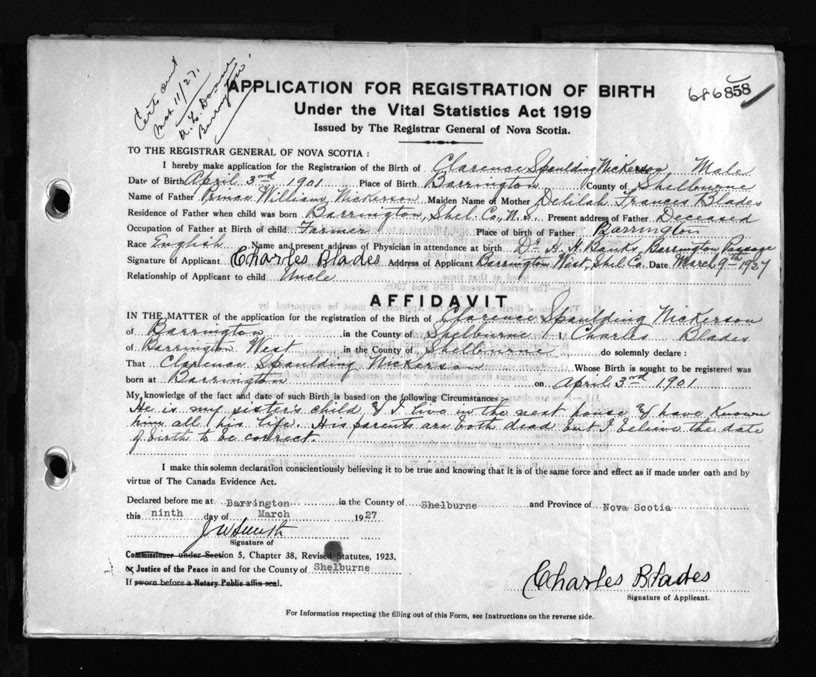 Certs sent
Mch 11/27.
A. L.
Barrington
APPLICATION FOR REGISTRATION OF BIRTH
686858
Under the Vital Statistics Act 1919
Issued by The Registrar General of Nova Scotia.
TO THE REGISTRAR GENERAL OF NOVA SCOTIA :
I hereby make application for the Registration of the Birth of Clarence Spaulding Nickerson, Male
Date of Birth April 3rd 1901 Place of Birth Barrington County of Shelbourne
Name of Father William Nickerson Maiden Name of Mother Delilah Frances Blades
Residence of Father when child was born Barrington, Shel. Co, N.S. Present address of Father Deceased
Occupation of Father at Birth of child Farmer Place of birth of Father Barrington
Race English Name and present address of Physician in attendance at birth Dr H. H. Banks, Barrington Passage
Signature of Applicant Charles Blades Address of Applicant Barrington West, Shel Co. Date March 9th 1927
Relationship of Applicant to child Uncle
AFFIDAVIT
IN THE MATTER of the application for the registration of the Birth of Clarence Spaulding Nickerson
of Barrington in the County of Shelburne I, Charles Blades
of Barrington West in the County of Shelbourne do solemnly declare :
That Clarence Spaulding Nickerson Whose Birth is sought to be registered was
born at Barrington on April 3rd 1901
My knowledge of the fact and date of such Birth is based on the following Circumstances :
He is my sister's child, & I live in the next house & have known
him all his life. His parents are both dead but I believe the date
of birth to be correct.
I make this solemn declaration conscientiously believing it to be true and knowing that it is of the same force and effect as if made under oath and by
virtue of The Canada Evidence Act.
Declared before me at Barrington in the County of Shelburne and Province of Nova Scotia
this ninth day of March 1927
J W Smith
Signature of
Commissioner under Section 5, Chapter 38, Revised Statutes, 1923,
or Justice of the Peace in and for the County of Shelburne
If sworn before a Notary Public affix seal.
Charles Blades
Signature of Applicant.
For Information respecting the filling out of this Form, see Instructions on the reverse side.